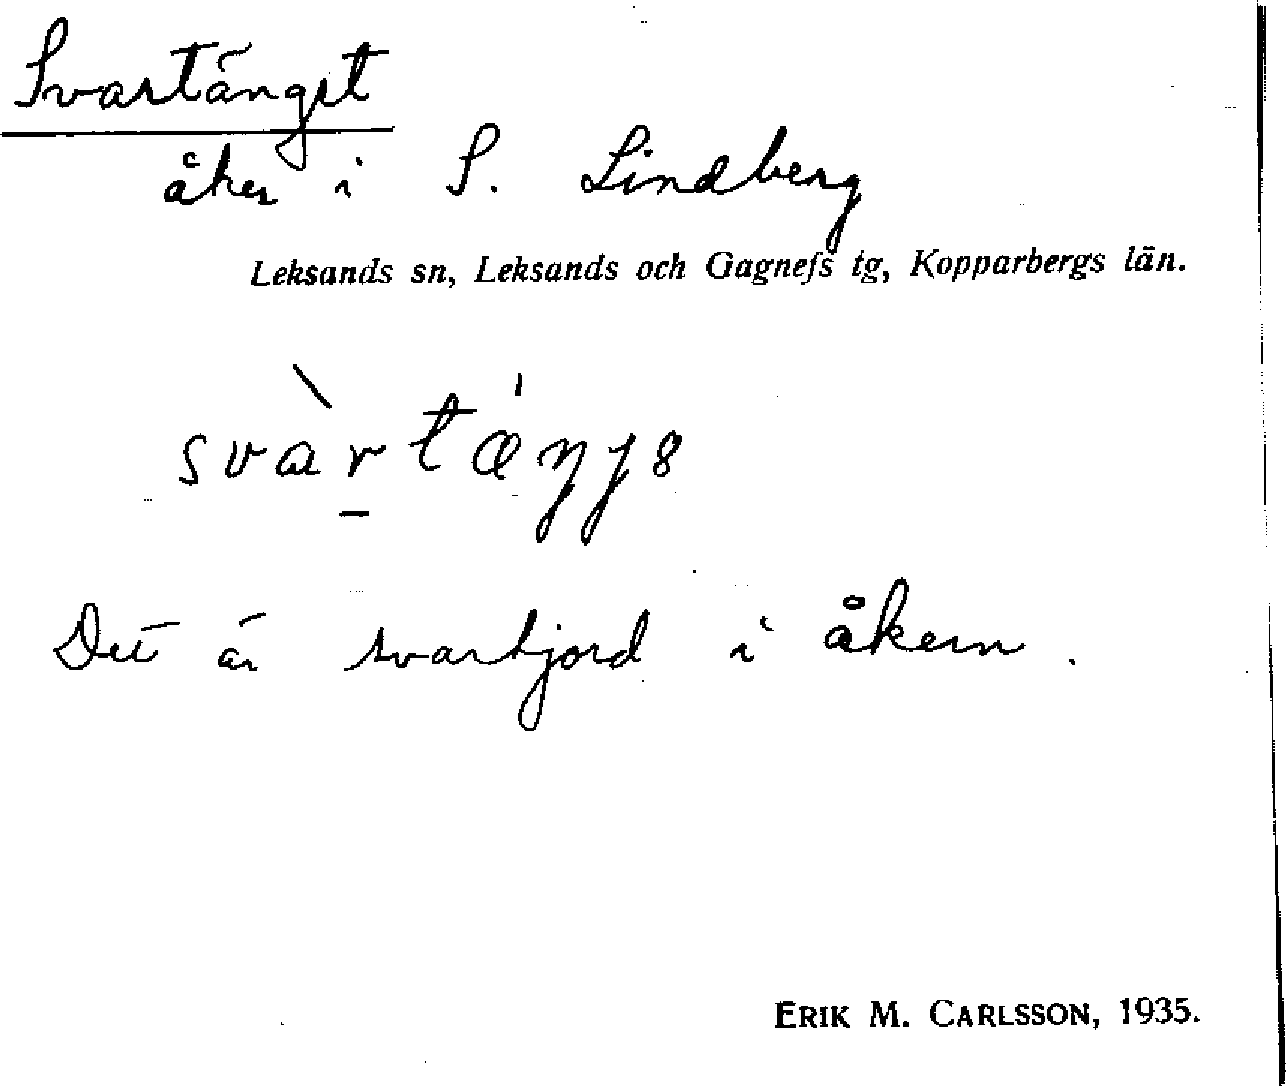 Svartängst
åker i S. Lindberg
Leksands sn, Leksands och Gagnefs tg, Kopparbergs län.
svàrtæ̀ŋjs
Det är svartjord i åkern.
ERIK M. CARLSSON, 1935.